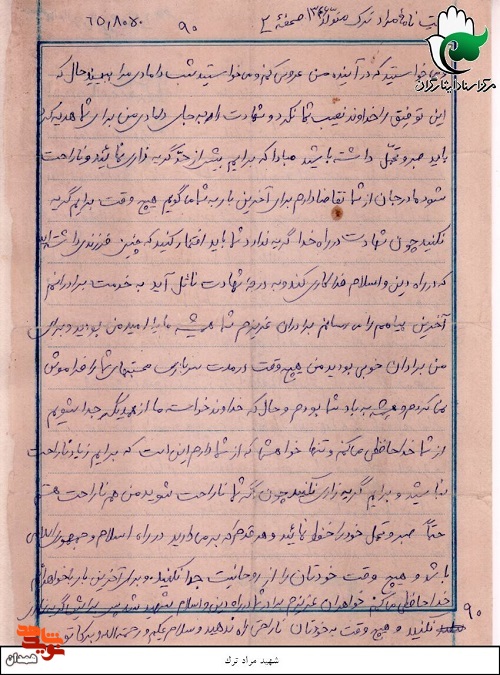 نامه مراد ترک متولد ۱۳۴۶ صفحهٔ ۲
۹۰
۶۵,۸۰۸۰
مرکز اسناد ایثارگران
می خواستید که در آینده من عروسی کنم و می خواستید شب دامادی مرا ببینید حال که
این توفیق را خداوند نصیب شما نکرد و شهادت را به جای دامادی من برای شما هدیه کرد
باید صبر و تحمل داشته باشید مبادا که برایم بیش از حد گریه زاری نمائید و ناراحت
شوید مادر جان از شما تقاضا دارم برای آخرین بار به شما گویم هیچ وقت برایم گریه
نکنید چون شهادت در راه خدا گریه ندارد شما باید افتخار کنید که چنین فرزندی داشته‌اید
که در راه دین و اسلام فداکاری کند و به درجه شهادت نائل آید به خدمت برادرانم
آخرین پیامم را می رسانم برادران عزیزم شما همیشه مایه امید من بودید و برای
من برادران خوبی بودید من هیچ وقت در مدت سربازی محبتهای شما را فراموش
نمی کردم و همیشه به یاد شما بودم و حال که خداوند خواست ما از همدیگر جدا شویم
از شما خداحافظی می کنم و تنها خواهشی که از شما دارم این است که برایم زیاد ناراحت
نباشید و برایم گریه زاری نکنید چون اگر شما ناراحت شوید من هم ناراحت هستم
حتماً صبر و تحمل خود را حفظ نمائید و هر قدم که بر می دارید در راه اسلام و جمهوری اسلامی
باشد و هیچ وقت خودتان را از روحانیت جدا نکنید و برای آخرین بار با خواهرانم
خداحافظی می کنم خواهران عزیزم برادر شما در راه دین و اسلام شهید شد پس برایش گریه زاری
نکنید و هیچ وقت به خودتان ناراحتی راه ندهید و سلام علیکم و رحمة الله و برکاته
۹۰
همدان
شهید مراد ترک